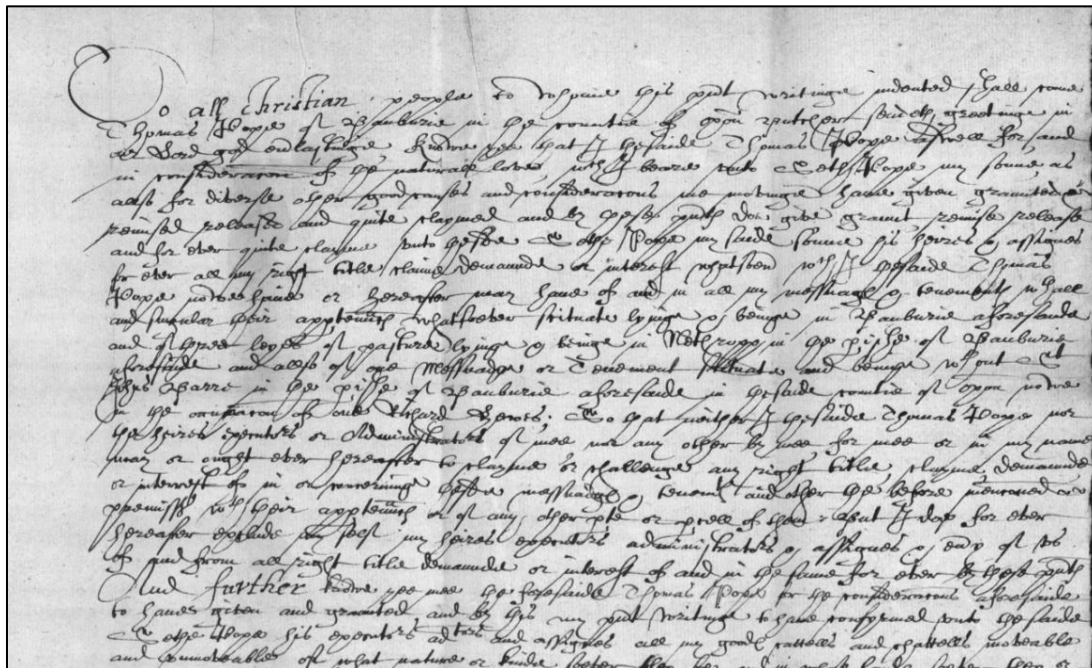 To all Christian people to whome this pnt writinge indented shall come
Thomas Pope of Banburie in the countie of Oxon butcher sendeth greetinge in
our Lord god everlastinge Knowe yee that I thesaide Thomas Pope aswell for and
in consideracon of the naturall love wch I beare unto Sethe Pope my sonne as
alsoe for diverse other good causes and consideracons me movinge have given graunted
remised released and quite claymed and by these pnts doe give graunt remise release
and for ever quite clayme unto the Sethe Pope my saide sonne his heires & assignes
for ever all my right title claime demaunde or interest whatsoever wch I thesaide Thomas
Pope nowe have or hereafter may have of and in all my messuages & tenements wth all
and singular their apptenncs whatsoever scituate lyinge & beinge in Banburie aforesaide
and of three leyes of pasture lyinge & beinge in Nethropp in the pishe of Banburie
aforesaide and alsoe of one Messuadge or Tenement scituate and beinge wthout St
Johns Barre in the pishe of Banburie aforesaide in thesaide countie of Oxon nowe
in the occupacon of one Richard So that neither I thesaide Thomas Pope nor
the heires executors or Administrators of mee nor any other by mee for mee or in my name
may or ought ever hereafter to clayme or challenge any right title clayme demaunde
or interest of in or concerninge messuadges & tenemts and other the before mencioned
premisses wth their apptenncs or of any other pte or pcell of them But I doe for ever
hereafter exclude my self my heires executors administrators & assignes & evy of us
of and from all right title demaunde or interest of and in the same for ever by these pnts
And further knowe yee mee the foresaide Thomas Pope for the consideracons aforesaide
to have given and graunted and by this my pnt writinge to have confirmed unto the saide
Sethe Pope his executors adtors and assignes all my goods cattells and chattells moveable
and unmoveables of what nature or kinde soever they be and in what